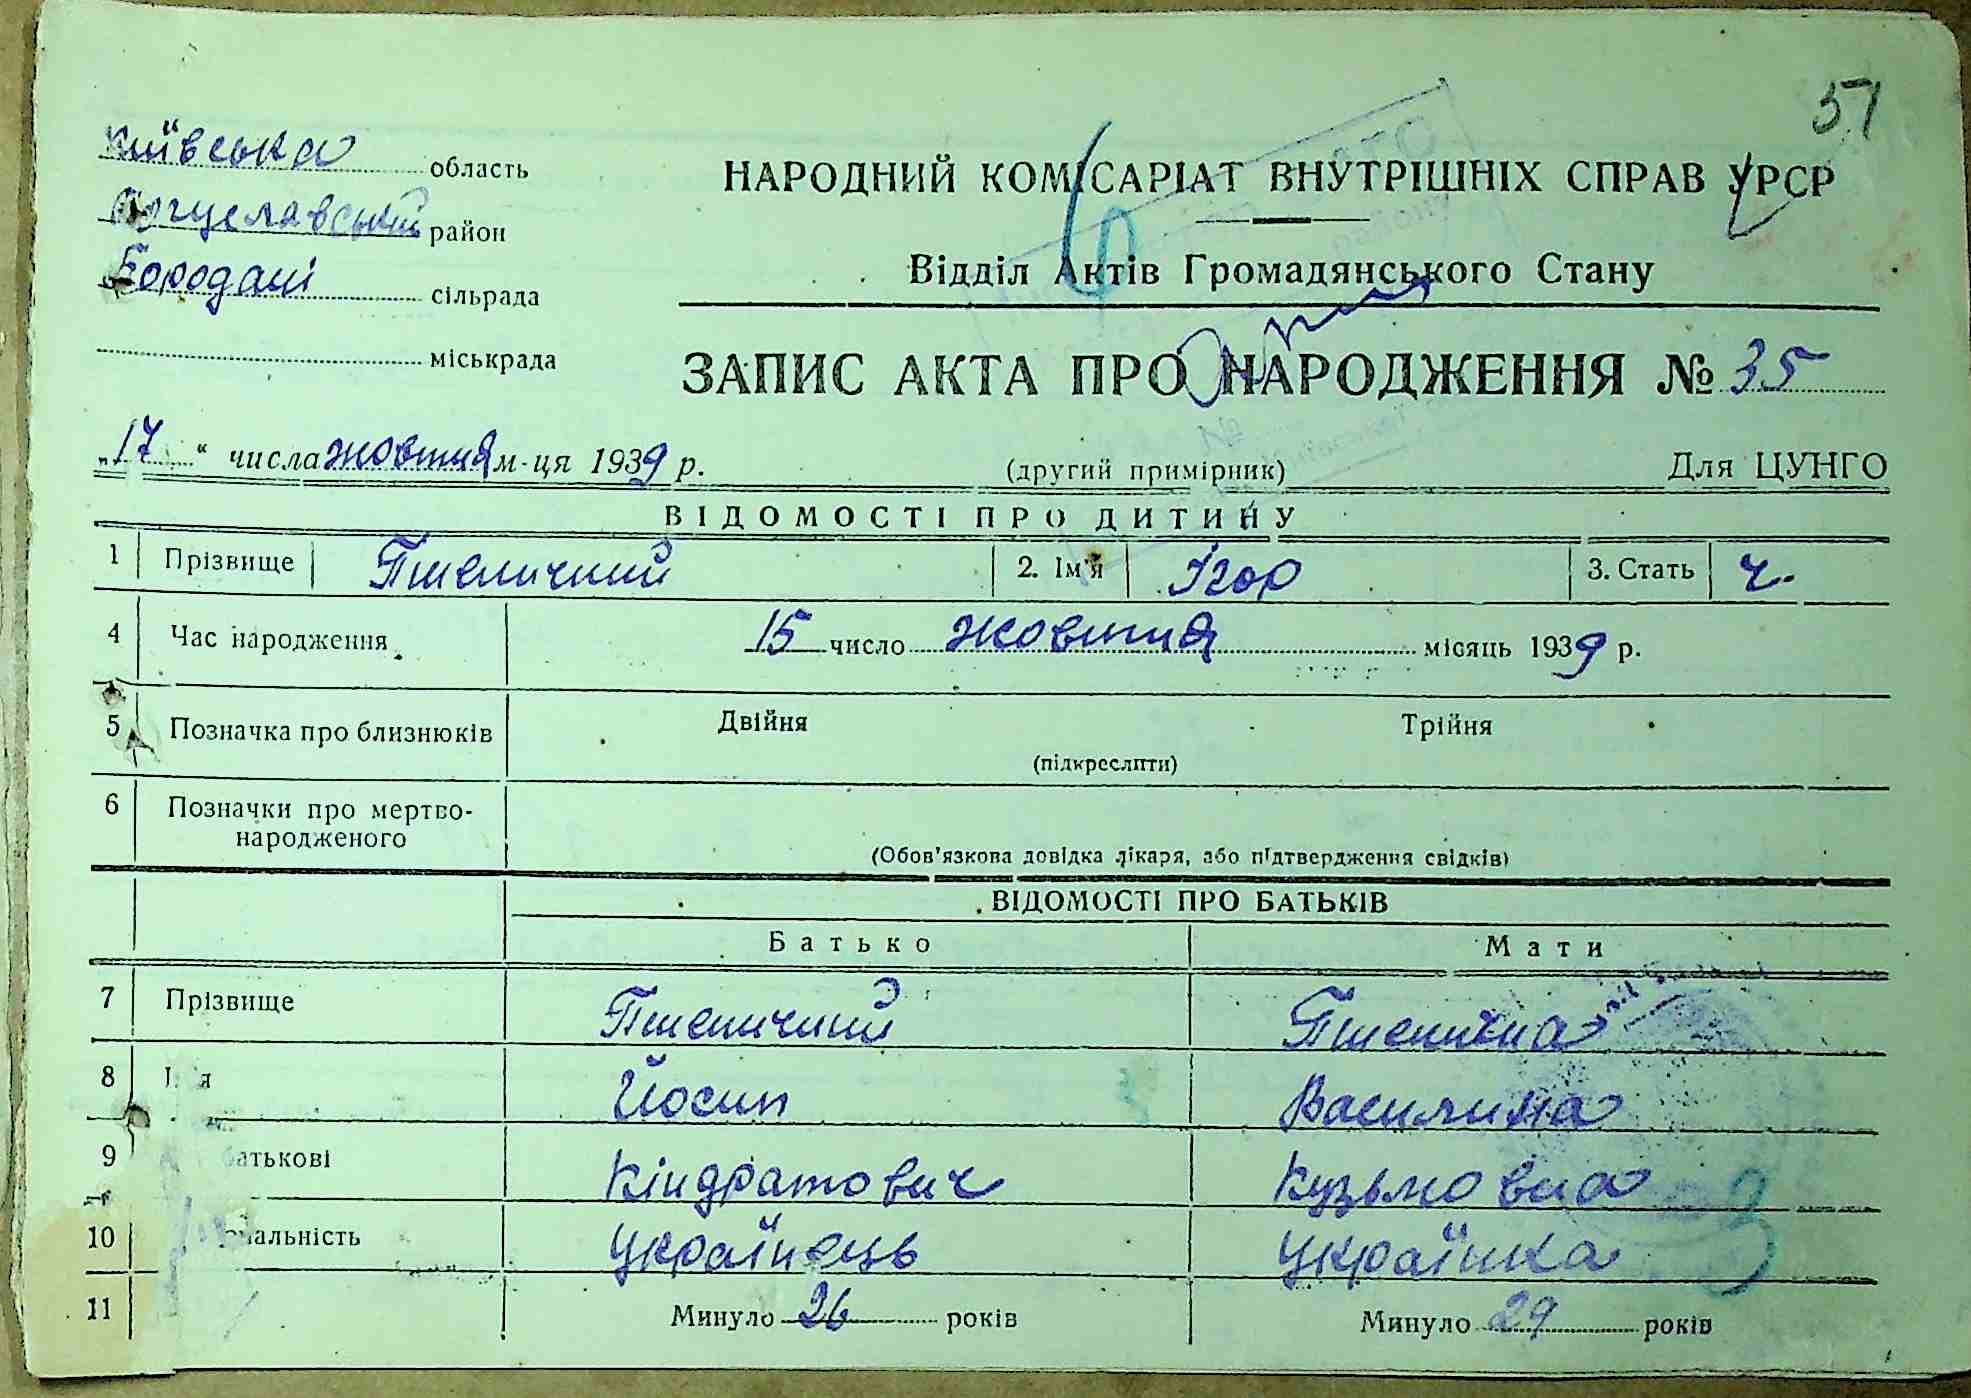 51
Київська область
Богуславський район
Бородані сільрада
міськрада
НАРОДНИЙ КОМІСАРІАТ ВНУТРІШНІХ СПРАВ УРСР
Відділ Актів Громадянського Стану
ЗАПИС АКТА ПРО НАРОДЖЕННЯ № 35
„17“ числа жовтня м-ця 1939 р.
(другий примірник)
Для ЦУНГО
ВІДОМОСТІ ПРО ДИТИНУ
1 Прізвище Пшеничний 2. Ім'я Ігор 3. Стать ч.
4 Час народження 15 число жовтня місяць 1939 р.
5 Позначка про близнюків Двійня Трійня
(підкреслити)
6 Позначки про мертво-
народженого
(Обов'язкова довідка лікаря, або підтвердження свідків)
ВІДОМОСТІ ПРО БАТЬКІВ
Батько Мати
7 Прізвище Пшеничний Пшенична
8 Йосип Василина
9 батькові Кіндратович Кузьмовна
10 українець українка
11 Минуло 26 років Минуло 29 років